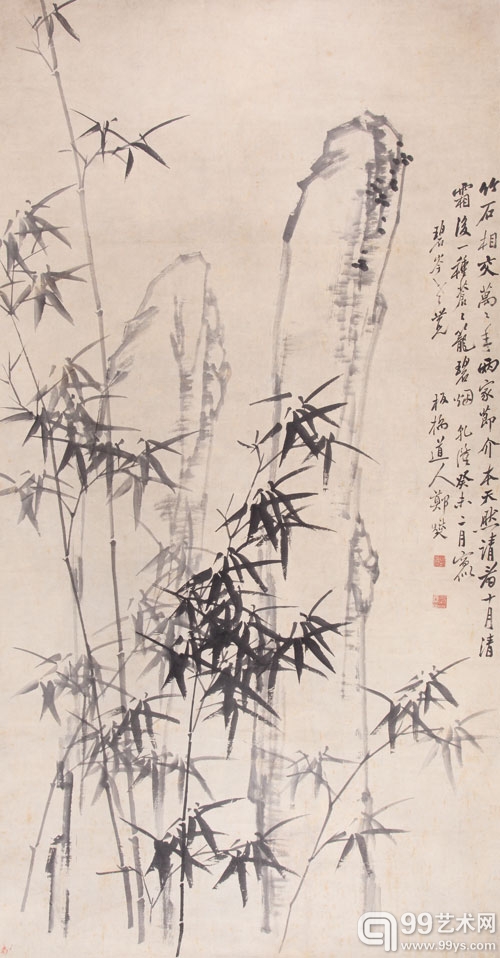 竹石相交萬〻年兩家節介本天然請看十月清
霜後一種蒼〻籠碧烟 乾隆癸未二月寫似
碧岑
板橋道人鄭燮
99艺术网
www.99ys.com